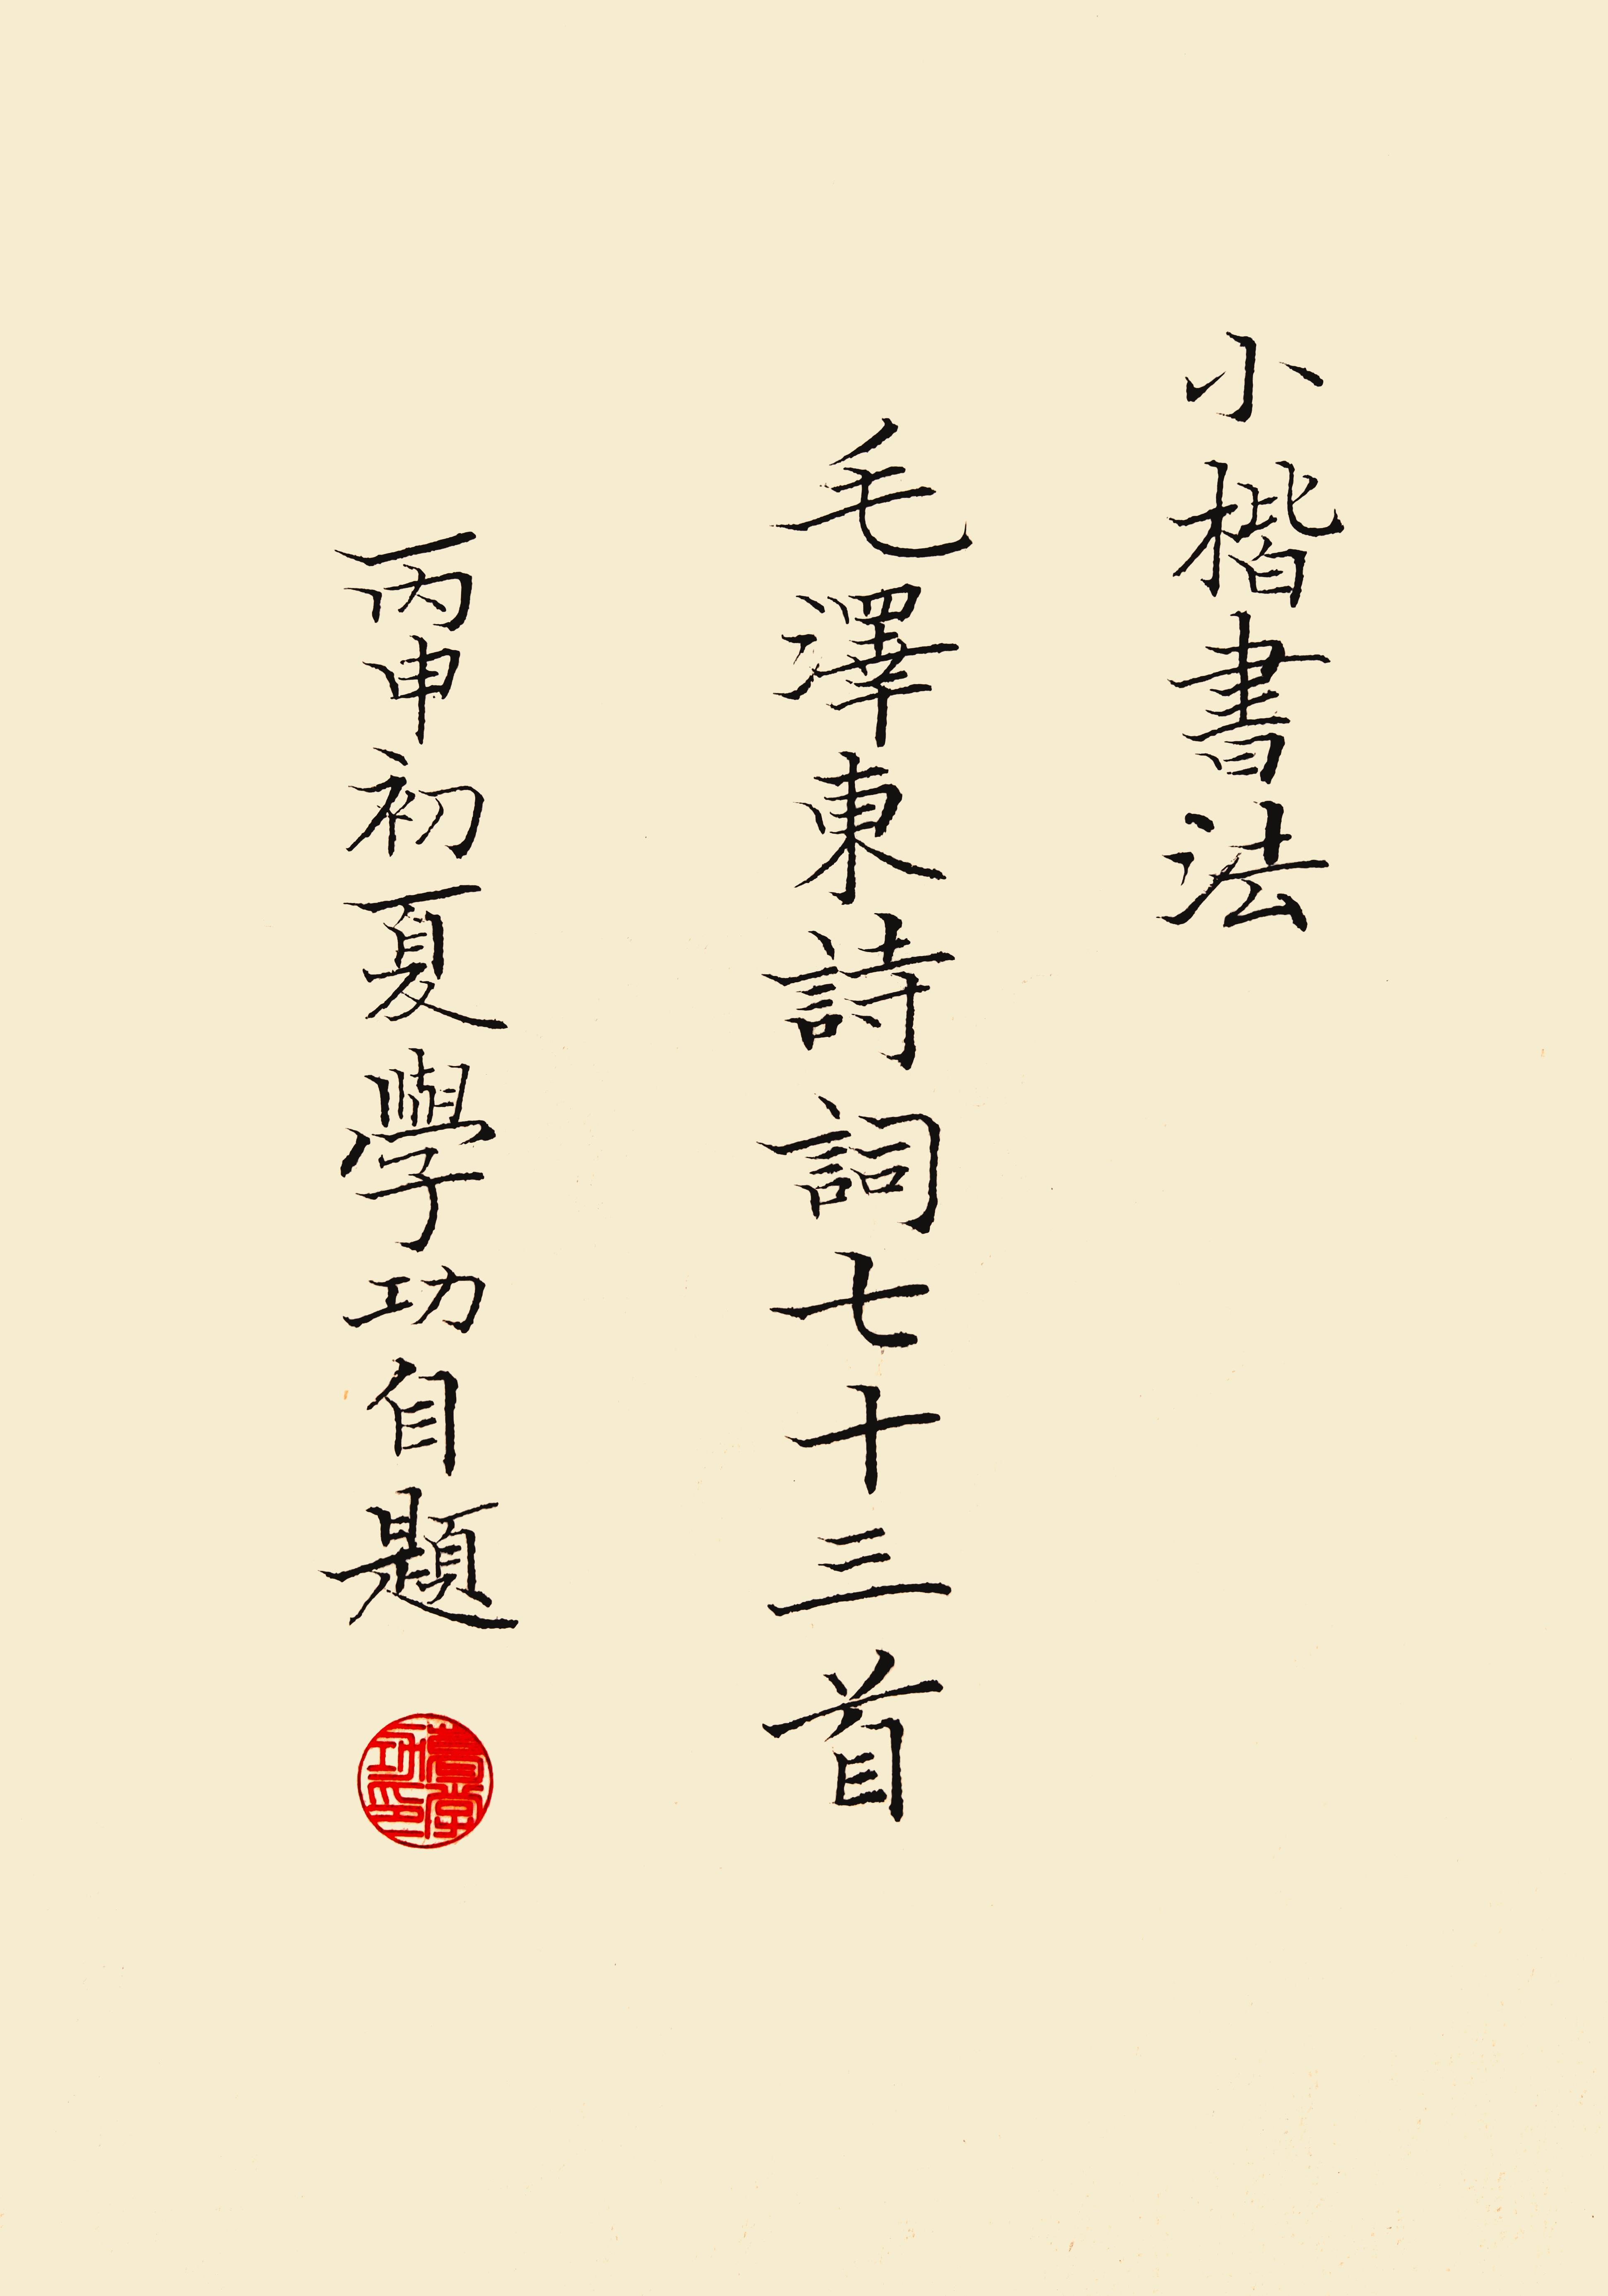 小楷書法
毛澤東詩詞七十三首
丙申初夏學功自題